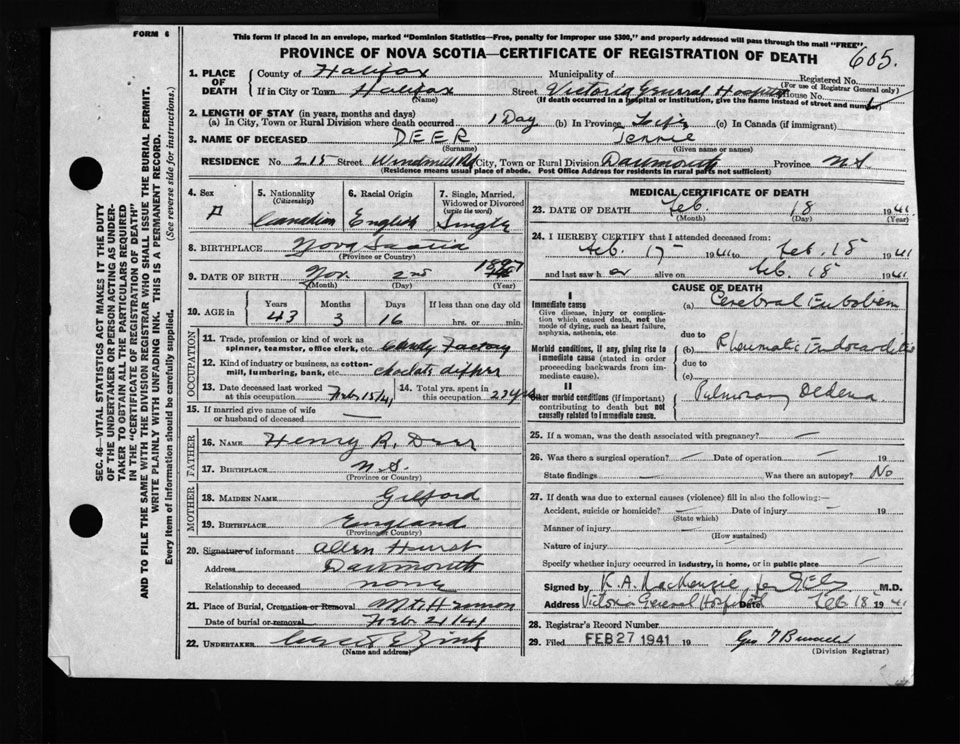 FORM 6
This form if placed in an envelope, marked "Dominion Statistics—Free, penalty for improper use $300," and properly addressed will pass through the mail "FREE".
PROVINCE OF NOVA SCOTIA—CERTIFICATE OF REGISTRATION OF DEATH
605.
1. PLACE OF DEATH
County of Halifax
Municipality of
Registered No.
(For use of Registrar General only)
If in City or Town Halifax
(Name)
Street Victoria General Hospital House No.
(If death occurred in a hospital or institution, give the name instead of street and number)
2. LENGTH OF STAY (in years, months and days)
(a) In City, Town or Rural Division where death occurred 1 Day (b) In Province Life (c) In Canada (if immigrant)
3. NAME OF DECEASED DEER
(Surname)
(Given name or names)
RESIDENCE No. 215 Street Windmill Rd City, Town or Rural Division Dartmouth Province N.S.
(Residence means usual place of abode. Post Office Address for residents in rural parts not sufficient)
4. Sex
F
5. Nationality (Citizenship)
Canadian
6. Racial Origin
English
7. Single, Married, Widowed or Divorced (write the word)
Single
8. BIRTHPLACE Nova Scotia
(Province or Country)
9. DATE OF BIRTH Nov. 2nd 1897
(Month) (Day) (Year)
10. AGE in
Years Months Days If less than one day old
43 3 16 hrs. or min.
OCCUPATION
11. Trade, profession or kind of work as spinner, teamster, office clerk, etc. Candy Factory
12. Kind of industry or business, as cotton-mill, lumbering, bank, etc. choclate dipper
13. Date deceased last worked at this occupation Feb 15/41
14. Total yrs. spent in this occupation
15. If married give name of wife or husband of deceased —
FATHER
16. NAME Henry R. Deer
17. BIRTHPLACE N.S.
(Province or Country)
MOTHER
18. MAIDEN NAME Gilford
19. BIRTHPLACE England
(Province or Country)
20. Signature of informant Allen Hurst
Address Dartmouth
Relationship to deceased none
21. Place of Burial, Cremation or Removal Mt. Hermon
Date of burial or removal Feb. 21 41
22. UNDERTAKER Zink
(Name and address)
MEDICAL CERTIFICATE OF DEATH
23. DATE OF DEATH Feb. 18 1941.
(Month) (Day) (Year)
24. I HEREBY CERTIFY that I attended deceased from:
Feb. 17 1941 to Feb. 18 1941
and last saw her alive on Feb. 18 1941.
CAUSE OF DEATH
I
Immediate cause
Give disease, injury or complication which caused death, not the mode of dying, such as heart failure, asphyxia, asthenia, etc.
(a) Cerebral Embolism
due to
Morbid conditions, if any, giving rise to immediate cause (stated in order proceeding backwards from immediate cause).
(b) Rheumatic Endocarditis
due to
(c)
II
Other morbid conditions (if important) contributing to death but not causally related to immediate cause.
Pulmonary Oedema
25. If a woman, was the death associated with pregnancy? —
26. Was there a surgical operation? — Date of operation — 19
State findings — Was there an autopsy? No
27. If death was due to external causes (violence) fill in also the following:—
Accident, suicide or homicide? — Date of injury — 19
(State which)
Manner of injury —
(How sustained)
Nature of injury —
Specify whether injury occurred in industry, in home, or in public place —
Signed by K.A. MacKenzie M.D.
Address Victoria General Hospital Date Feb 18 1941
28. Registrar's Record Number
29. Filed FEB 27 1941 19
(Division Registrar)
SEC. 46—VITAL STATISTICS ACT MAKES IT THE DUTY
OF THE UNDERTAKER OR PERSON ACTING AS UNDERTAKER
TO OBTAIN ALL THE PARTICULARS REQUIRED
IN THE "CERTIFICATE OF REGISTRATION OF DEATH"
AND TO FILE THE SAME WITH THE DIVISION REGISTRAR WHO SHALL ISSUE THE BURIAL PERMIT.
WRITE PLAINLY WITH UNFADING INK. THIS IS A PERMANENT RECORD.
Every item of information should be carefully supplied.
(See reverse side for instructions.)